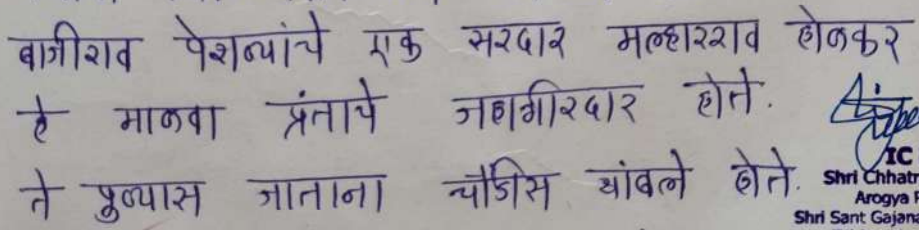 बाजीराव पेशव्यांचे एक सरदार मल्हारराव होळकर
हे माळवा प्रंताचे जहागीरदार होते.
ते पुण्यास जाताना चौंडीस थांबले होते.
IC
Shri Chhatr
Arogya P
Shri Sant Gajana